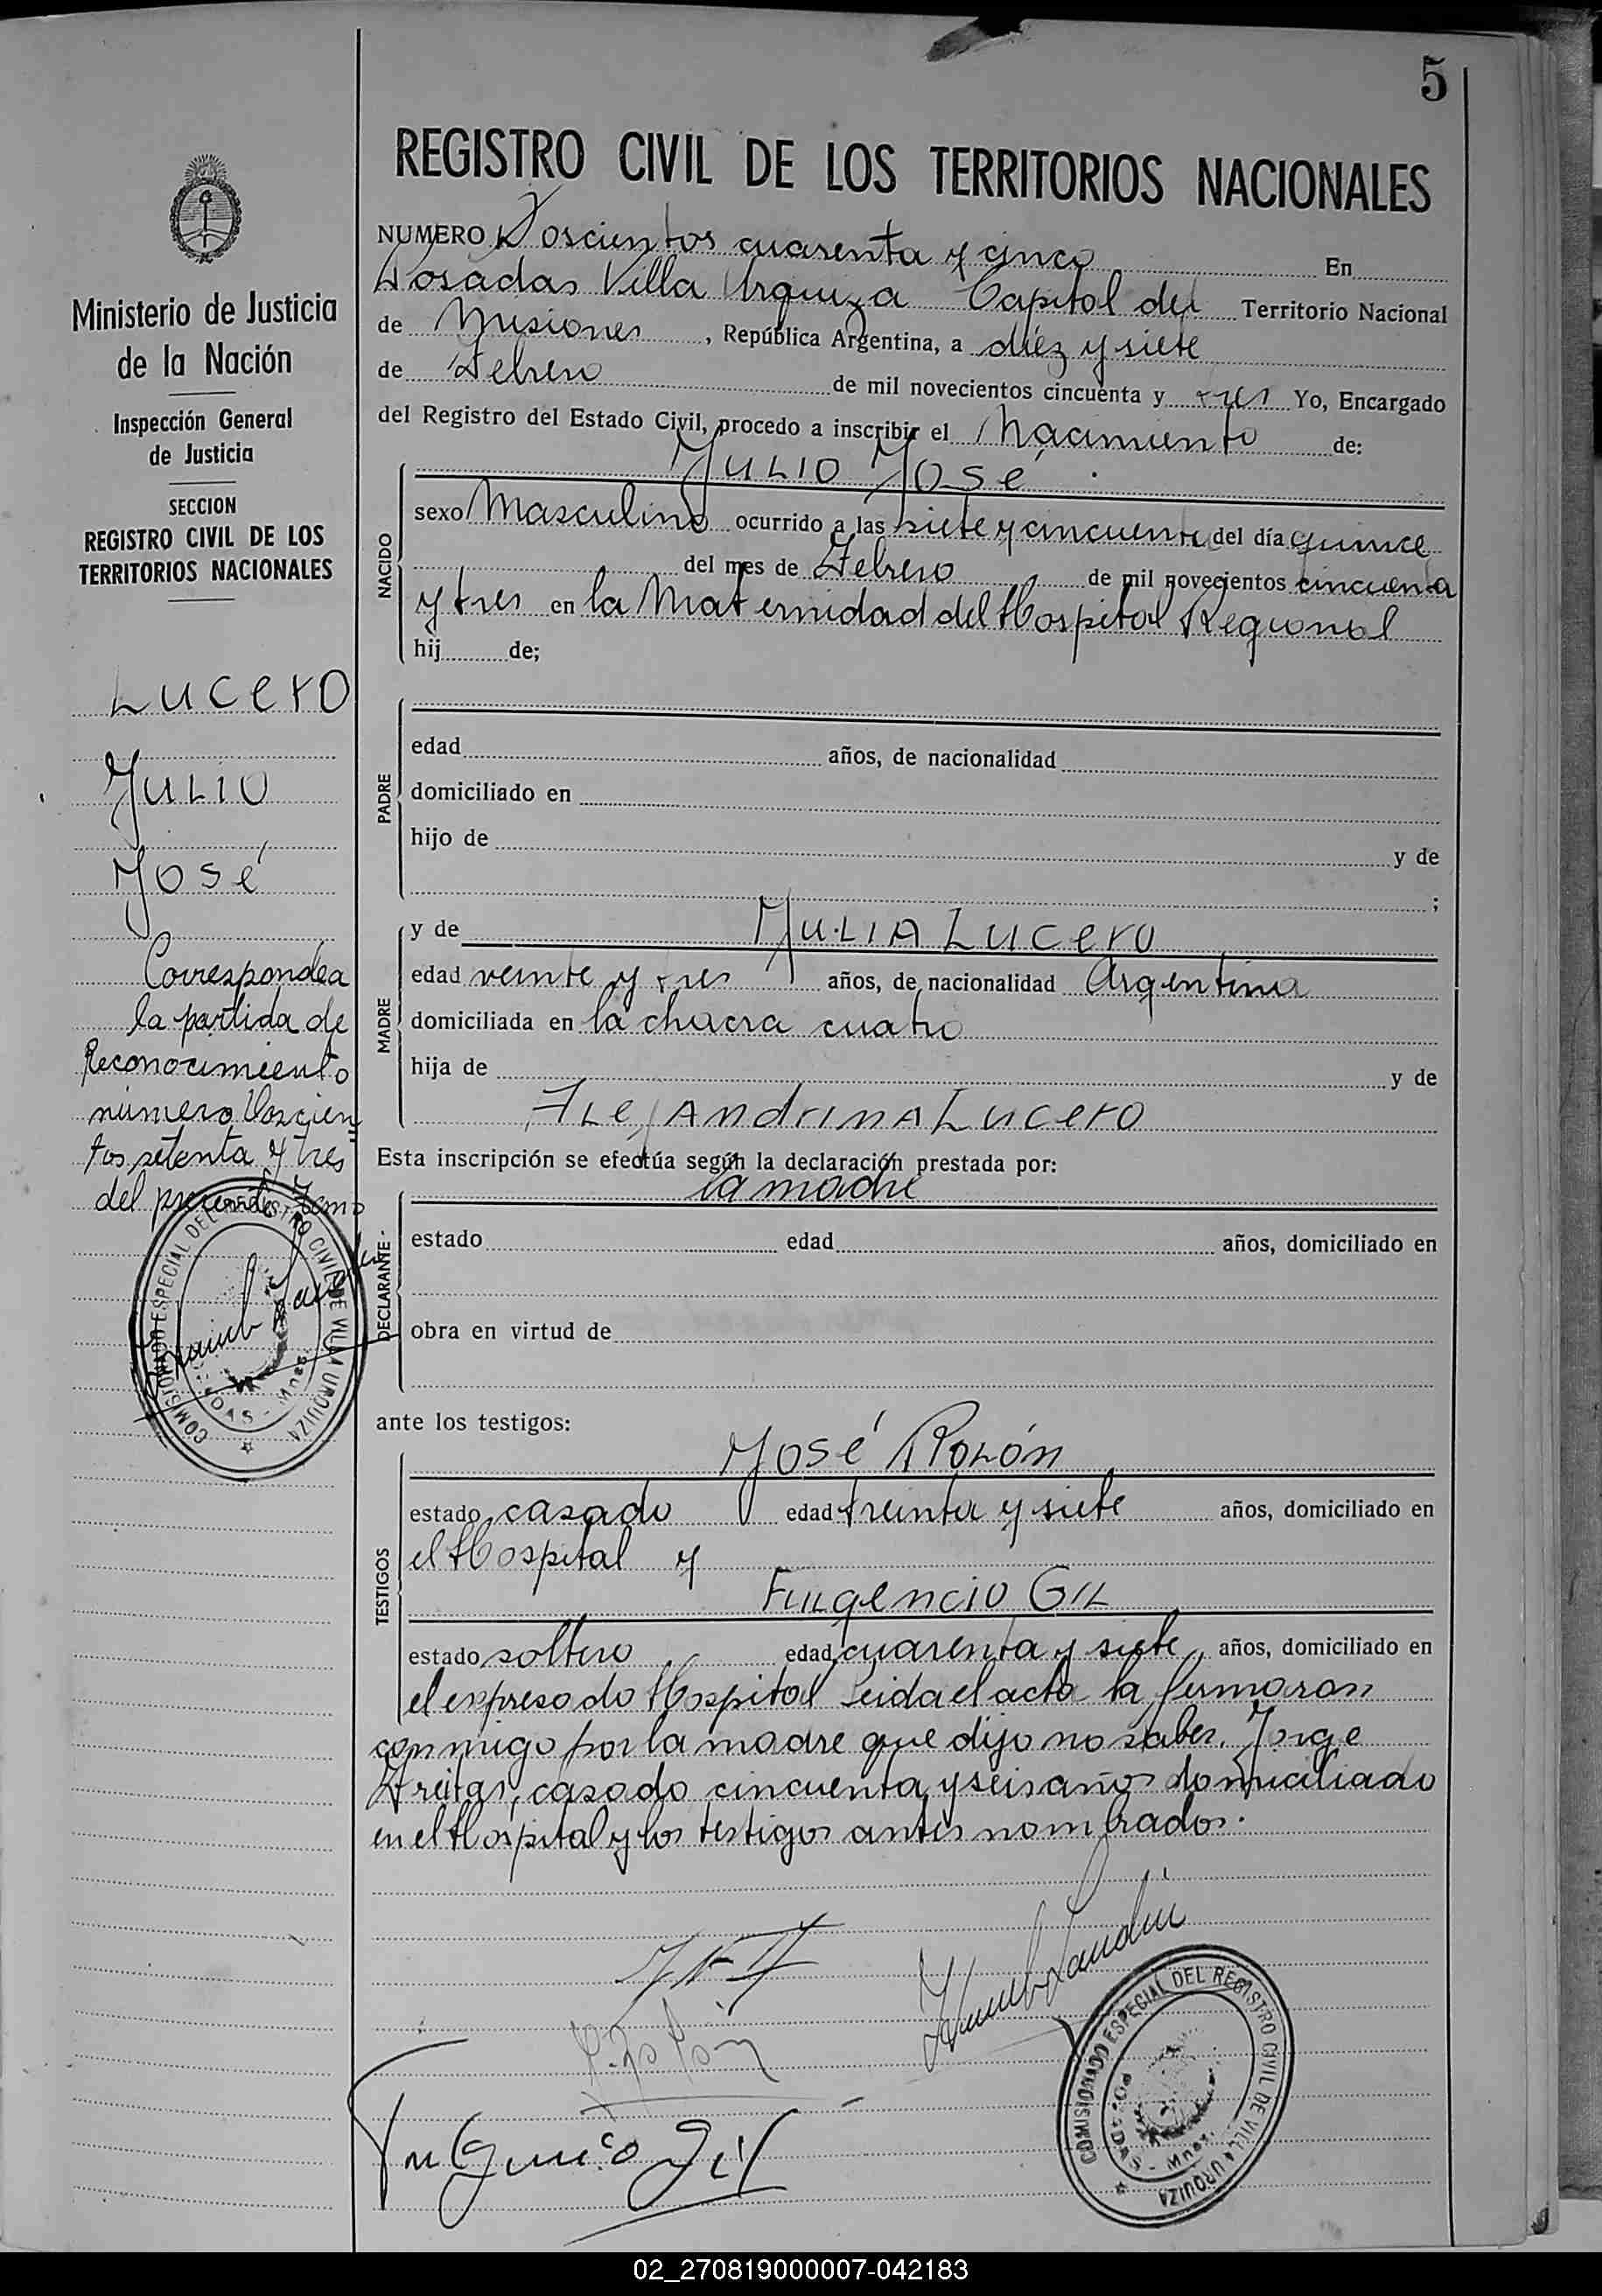 5
REGISTRO CIVIL DE LOS TERRITORIOS NACIONALES
NUMERO Doscientos cuarenta y cinco En
Posadas Villa Urquiza Capital del Territorio Nacional
de Misiones, República Argentina, a diéz y siete
de Febrero de mil novecientos cincuenta y tres Yo, Encargado
del Registro del Estado Civil, procedo a inscribir el Nacimiento de:
JULIO José
NACIDO
sexo Masculino ocurrido a las siete y cincuenta del día quince
del mes de Febrero de mil novecientos cincuenta
y tres en la Maternidad del Hospital Regional
hij de;
PADRE
edad años, de nacionalidad
domiciliado en
hijo de y de
;
MADRE
y de JULIA Lucero
edad veinte y tres años, de nacionalidad Argentina
domiciliada en la chacra cuatro
hija de y de
ALejAndrinA Lucero
Esta inscripción se efectúa según la declaración prestada por:
la madre
DECLARANTE
estado edad años, domiciliado en
obra en virtud de
ante los testigos:
TESTIGOS
José Rolón
estado casado edad treinta y siete años, domiciliado en
el Hospital y
Fulgencio Gil
estado soltero edad cuarenta y siete, años, domiciliado en
el expresado Hospital Leida el acta la firmaron
conmigo por la madre que dijo no saber, Jorge
Freitas, casado cincuenta y seis años domiciliado
en el Hospital y los testigos antes nombrados.
Fulgencio Gil
COMISIONADO ESPECIAL DEL REGISTRO CIVIL DE VILLA URQUIZA
POSADAS - Mnes.
Ministerio de Justicia
de la Nación
Inspección General
de Justicia
SECCION
REGISTRO CIVIL DE LOS
TERRITORIOS NACIONALES
Lucero
JULIO
José
Corresponde a
la partida de
Reconocimiento
número Doscien
tos setenta y tres
del presente Tomo
COMISIONADO ESPECIAL DEL REGISTRO CIVIL DE VILLA URQUIZA
POSADAS - Mnes.
02_270819000007-042183